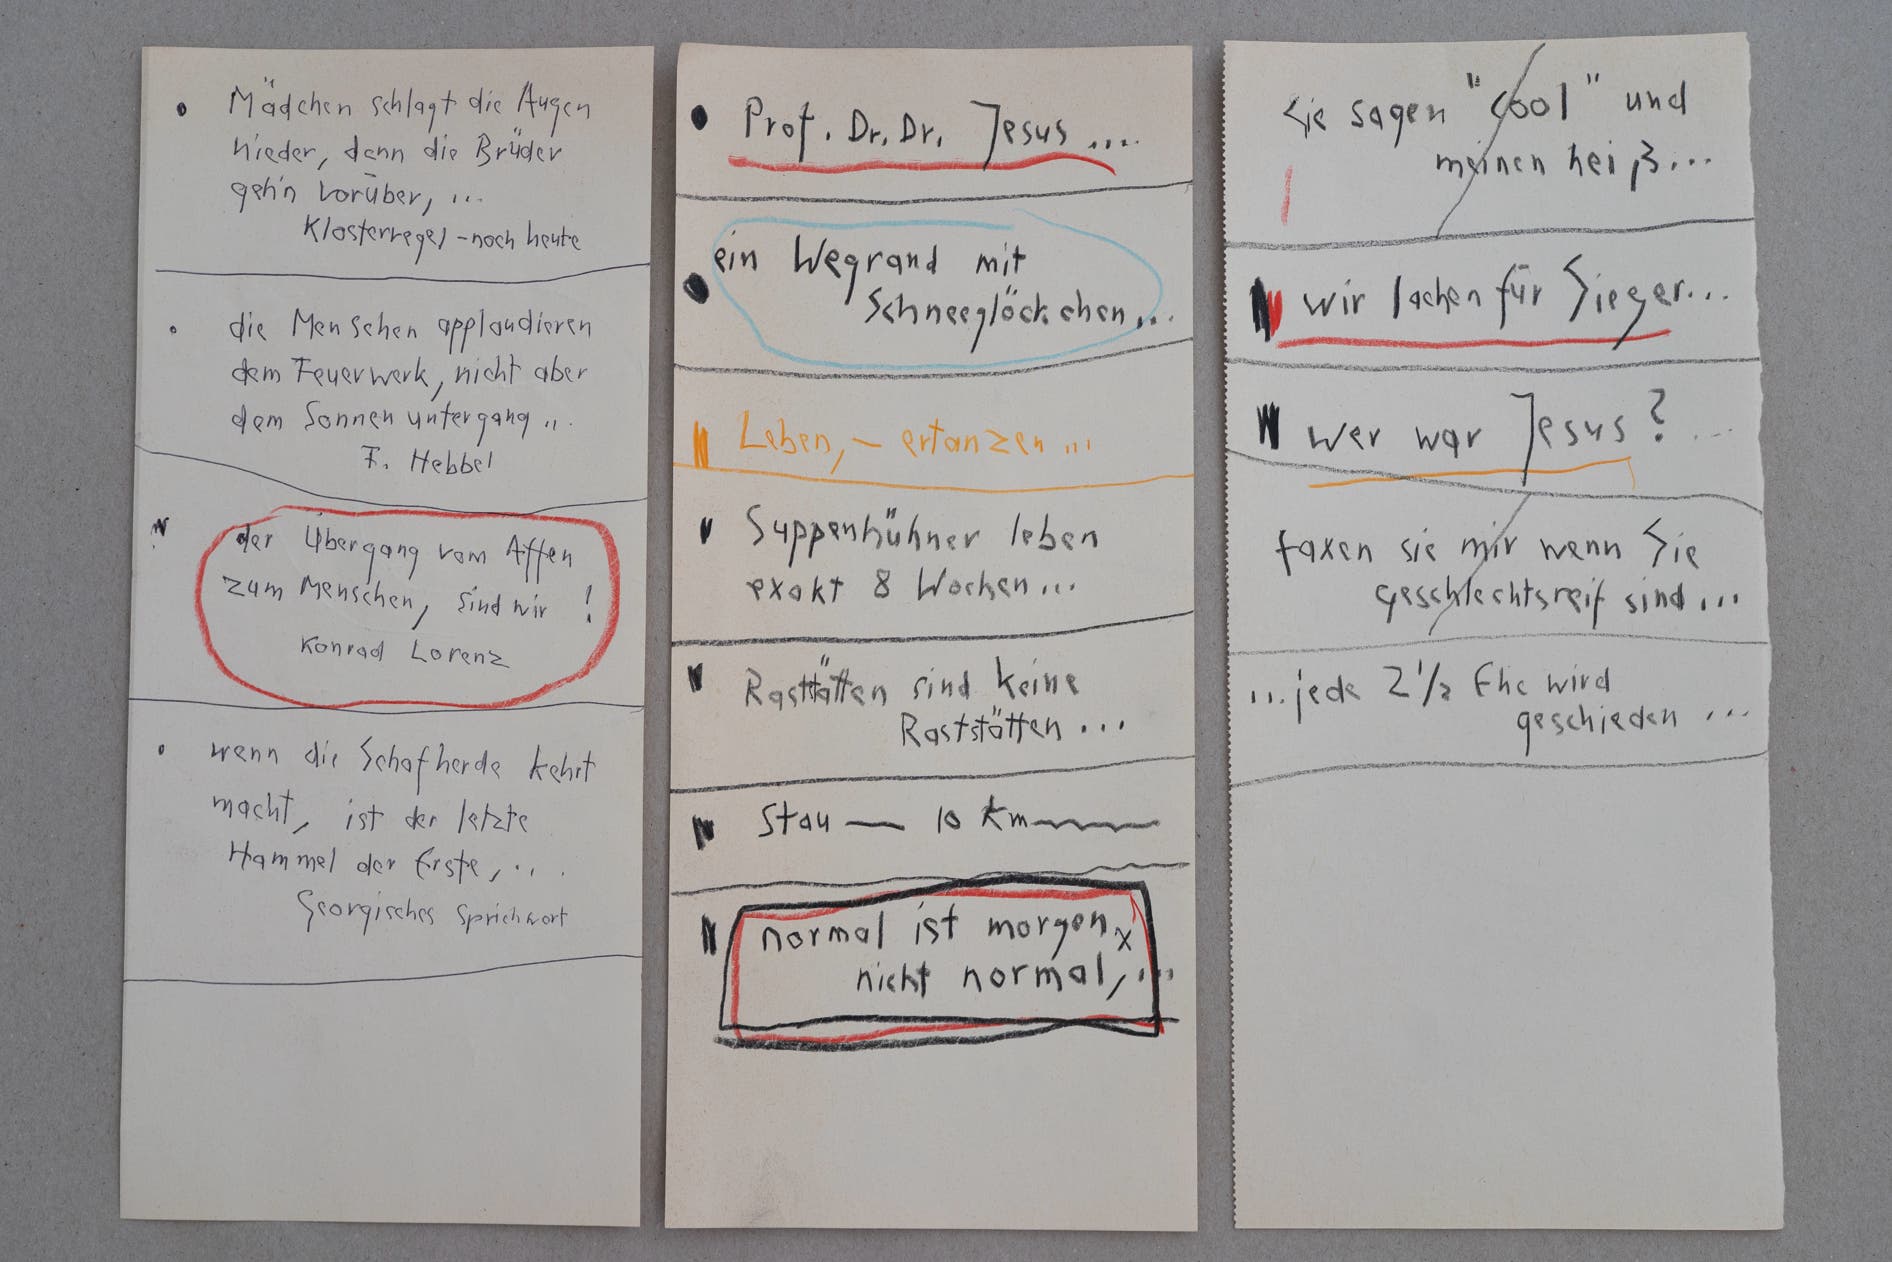 Mädchen schlagt die Augen
nieder, denn die Brüder
geh'n vorüber, ...
Klosterregel - noch heute
die Menschen applaudieren
dem Feuerwerk, nicht aber
dem Sonnenuntergang ...
F. Hebbel
der Übergang vom Affen
zum Menschen, sind wir !
Konrad Lorenz
wenn die Schafherde kehrt
macht, ist der letzte
Hammel der Erste, ...
Georgisches Sprichwort
Prof. Dr. Dr. Jesus ....
ein Wegrand mit
Schneeglöckchen...
Leben, - ertanzen ...
Suppenhühner leben
exakt 8 Wochen...
Rasttätten sind keine
Raststätten ...
Stau — 10 km
normal ist morgen
nicht normal, ...
Sie sagen "cool" und
meinen heiß...
wir lachen für Sieger...
wer war Jesus ? ...
faxen sie mir wenn Sie
geschlechtsreif sind ...
...jede 2 1/2 Ehe wird
geschieden ...